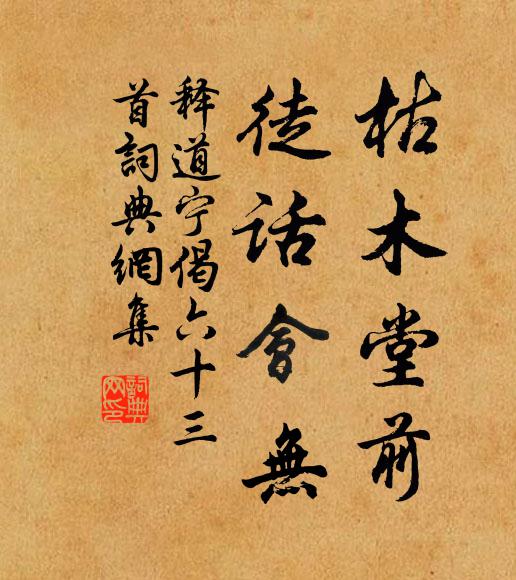 枯木堂前
徒話會無
释道宁偈六十三
首詞典網集
詞典
网印